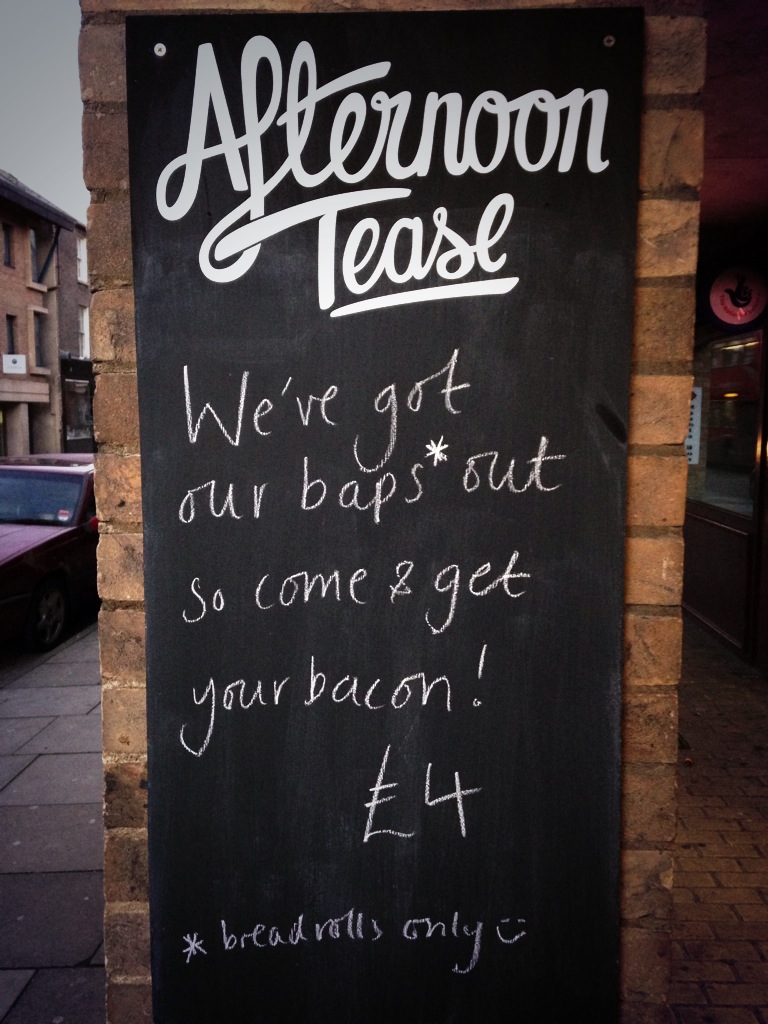 Afternoon
Tease
We've got
our baps* out
so come & get
your bacon!
£4
* bread rolls only